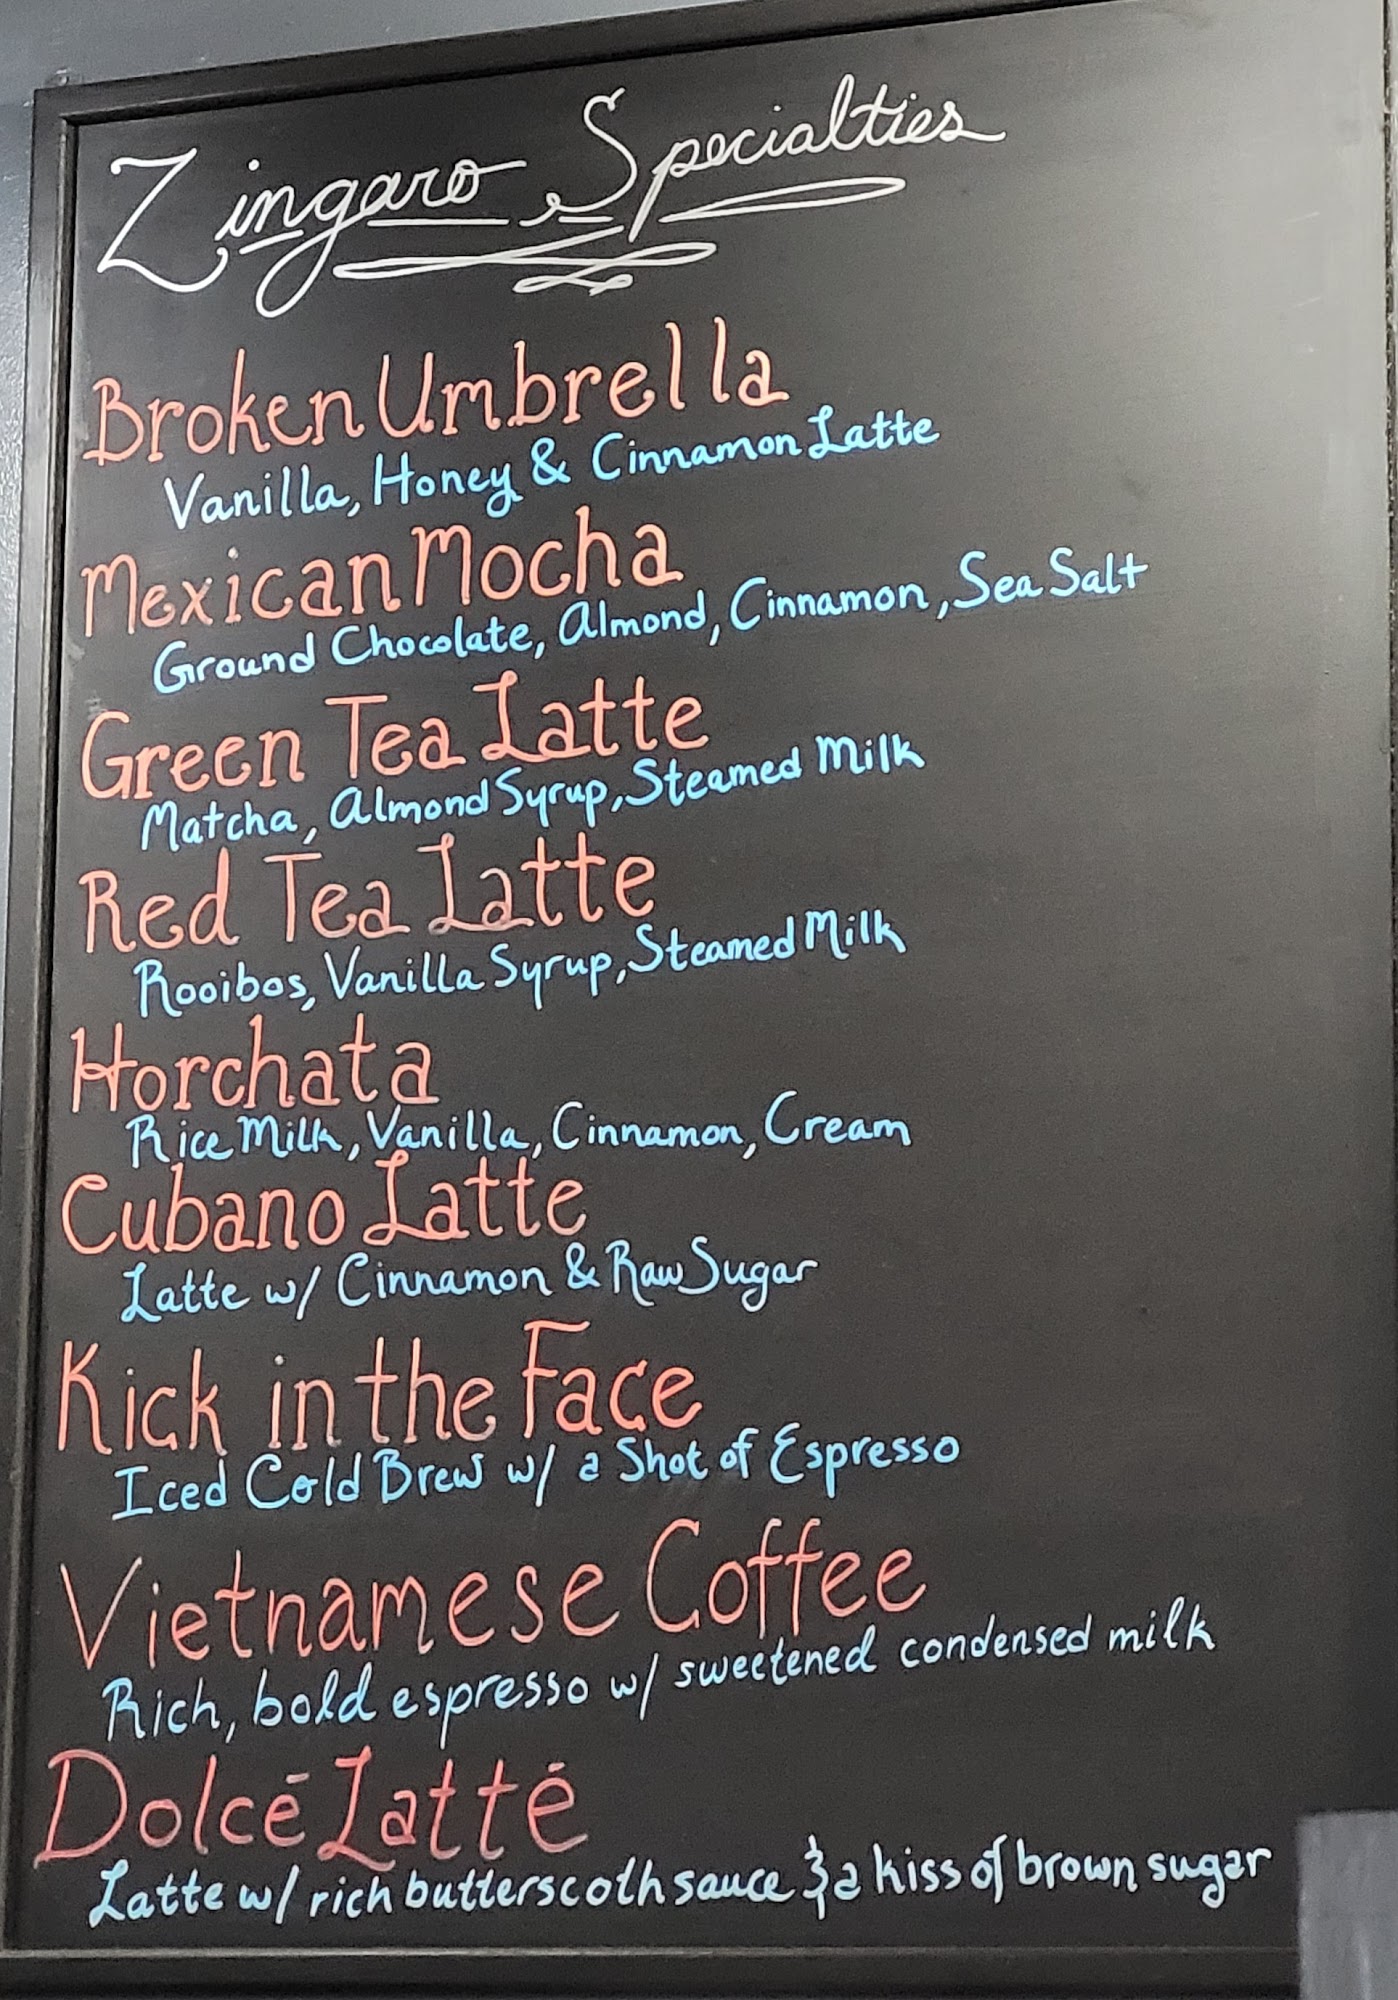 Zingaro Specialties
Broken Umbrella
Vanilla, Honey & Cinnamon Latte
Mexican Mocha
Ground Chocolate, Almond, Cinnamon, Sea Salt
Green Tea Latte
Matcha, Almond Syrup, Steamed Milk
Red Tea Latte
Rooibos, Vanilla Syrup, Steamed Milk
Horchata
Rice Milk, Vanilla, Cinnamon, Cream
Cubano Latte
Latte w/ Cinnamon & Raw Sugar
Kick in the Face
Iced Cold Brew w/ a Shot of Espresso
Vietnamese Coffee
Rich, bold espresso w/ sweetened condensed milk
Dolcē Lattē
Latte w/ rich butterscoth sauce & a kiss of brown sugar